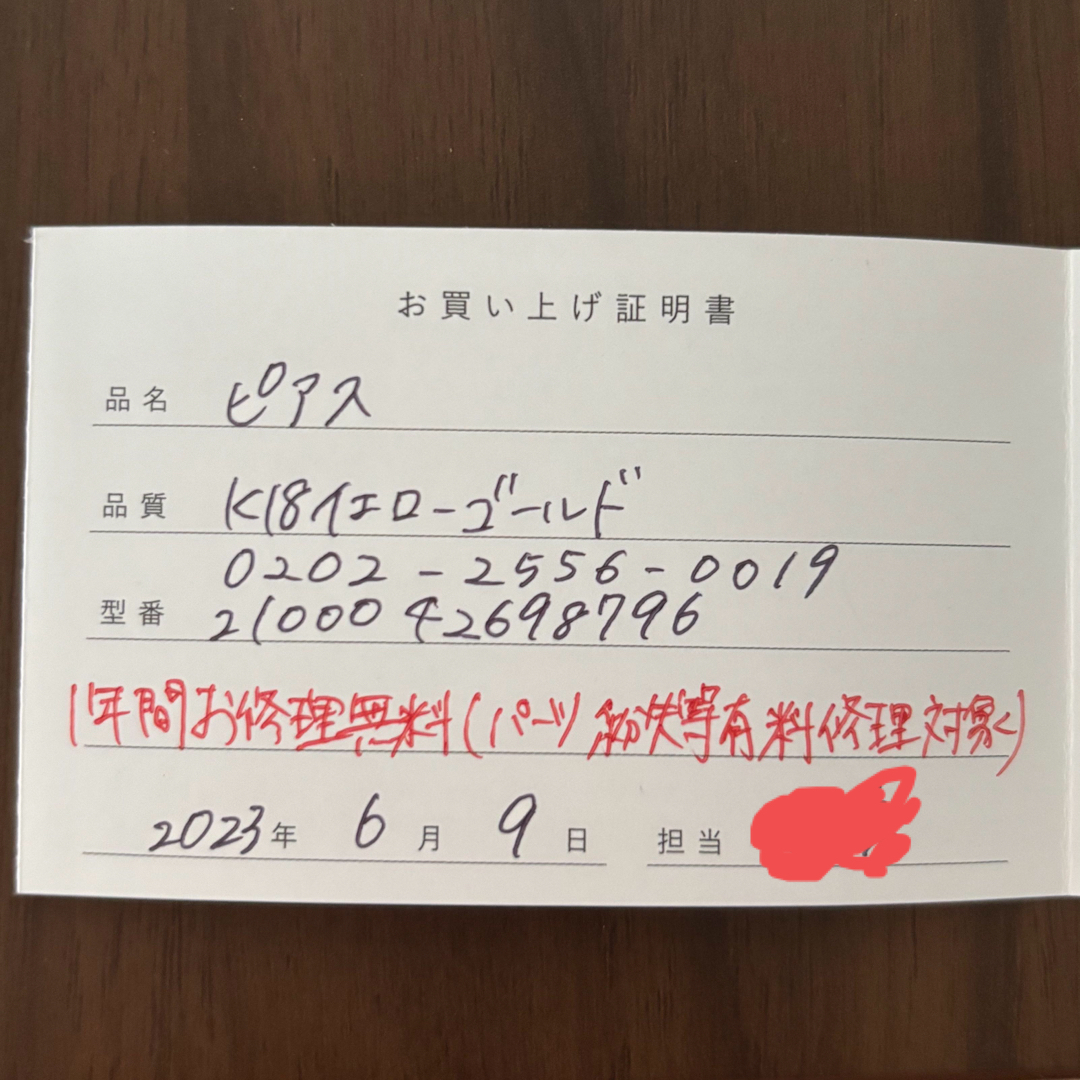 お買い上げ証明書
品名 ピアス
品質 K18イエローゴールド
0202-2556-0019
型番 2100042698796
1年間お修理無料(パーツ紛失等有料修理対象く)
2023年 6月 9日 担当